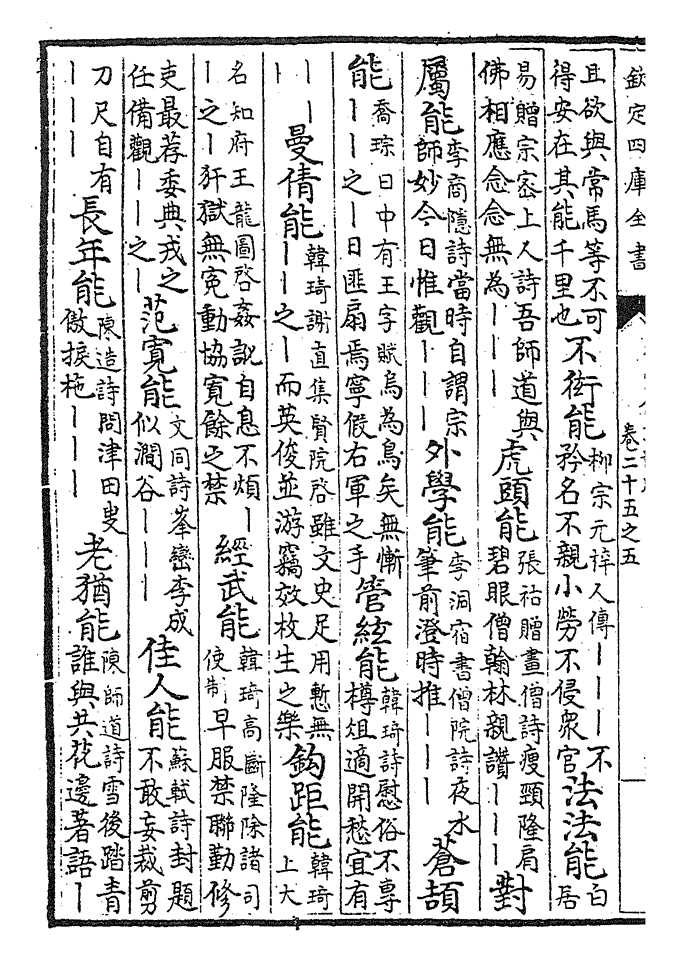 欽定四庫全書
卷二十五之五
且欲與常馬等不可得安在其能千里也不衒能柳宗元梓人傳｜｜｜不矜名不親小勞不侵衆官法法能白居
易贈宗密上人詩吾師道與佛相應念念無為｜｜｜虎頭能張祜贈畫僧詩瘦頸隆肩碧眼僧翰林親讃｜｜｜對
屬能李商隱詩當時自謂宗師妙今日惟觀｜｜｜外學能李洞宿書僧院詩夜水筆前澄時推｜｜｜蒼頡
能喬琮日中有王字賦烏為烏矣無慚｜｜之｜日匪扇焉寧假右軍之手管絃能韓琦詩慰俗不專樽俎適開愁宜有
｜｜｜曼倩能韓琦謝直集賢院啓雖文史足用慙無｜｜之｜而英俊並游竊效枚生之樂鈎距能韓琦上大
名知府王龍圖啓姦訟自息不煩｜｜之｜犴獄無寃動協寛餘之禁經武能韓琦高斷隆除諸司使制早服禁聯勤修
吏最荐委典戎之任備觀｜｜之｜范寛能文同詩峯巒李成似澗谷｜｜｜佳人能蘇軾詩封題不敢妄裁剪
刀尺自有｜｜｜長年能陳造詩問津田叟傲捩柂｜｜｜老猶能陳師道詩雪後踏青誰與共花邊著語｜